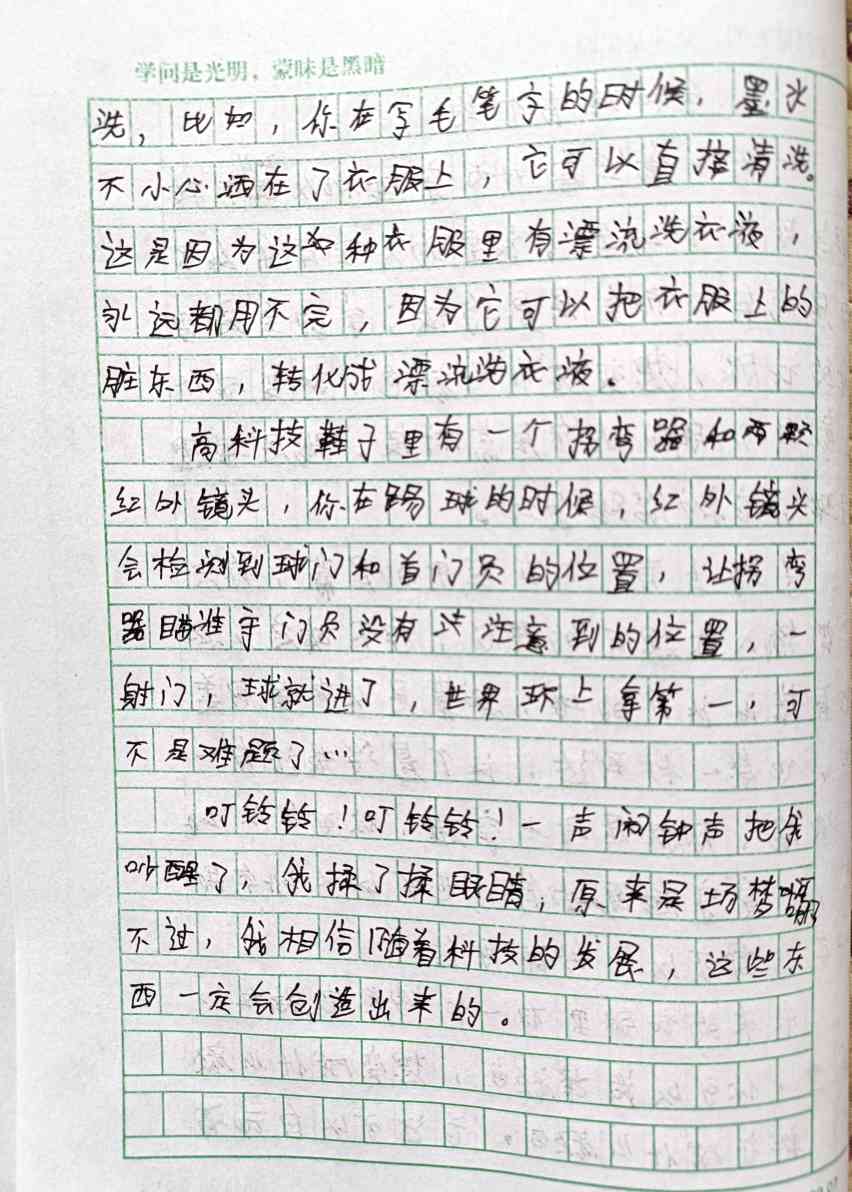 学问是光明，蒙昧是黑暗
洗，比如，你在写毛笔字的时候，墨水
不小心洒在了衣服上，它可以直接清洗。
这是因为这种衣服里有漂流洗衣液，
永远都用不完，因为它可以把衣服上的
脏东西，转化成漂流洗衣液。
高科技鞋子里有一个拐弯器和两颗
红外镜头，你在踢球的时候，红外镜头
会检测到球门和首门员的位置，让拐弯
器瞄准守门员没有注意到的位置，一
射门，球就进了，世界环上拿第一，可
不是难题了…
叮铃铃！叮铃铃！一声闹钟声把我
吵醒了，我揉了揉眼睛，原来是场梦啊
不过，我相信随着科技的发展，这些东
西一定会创造出来的。